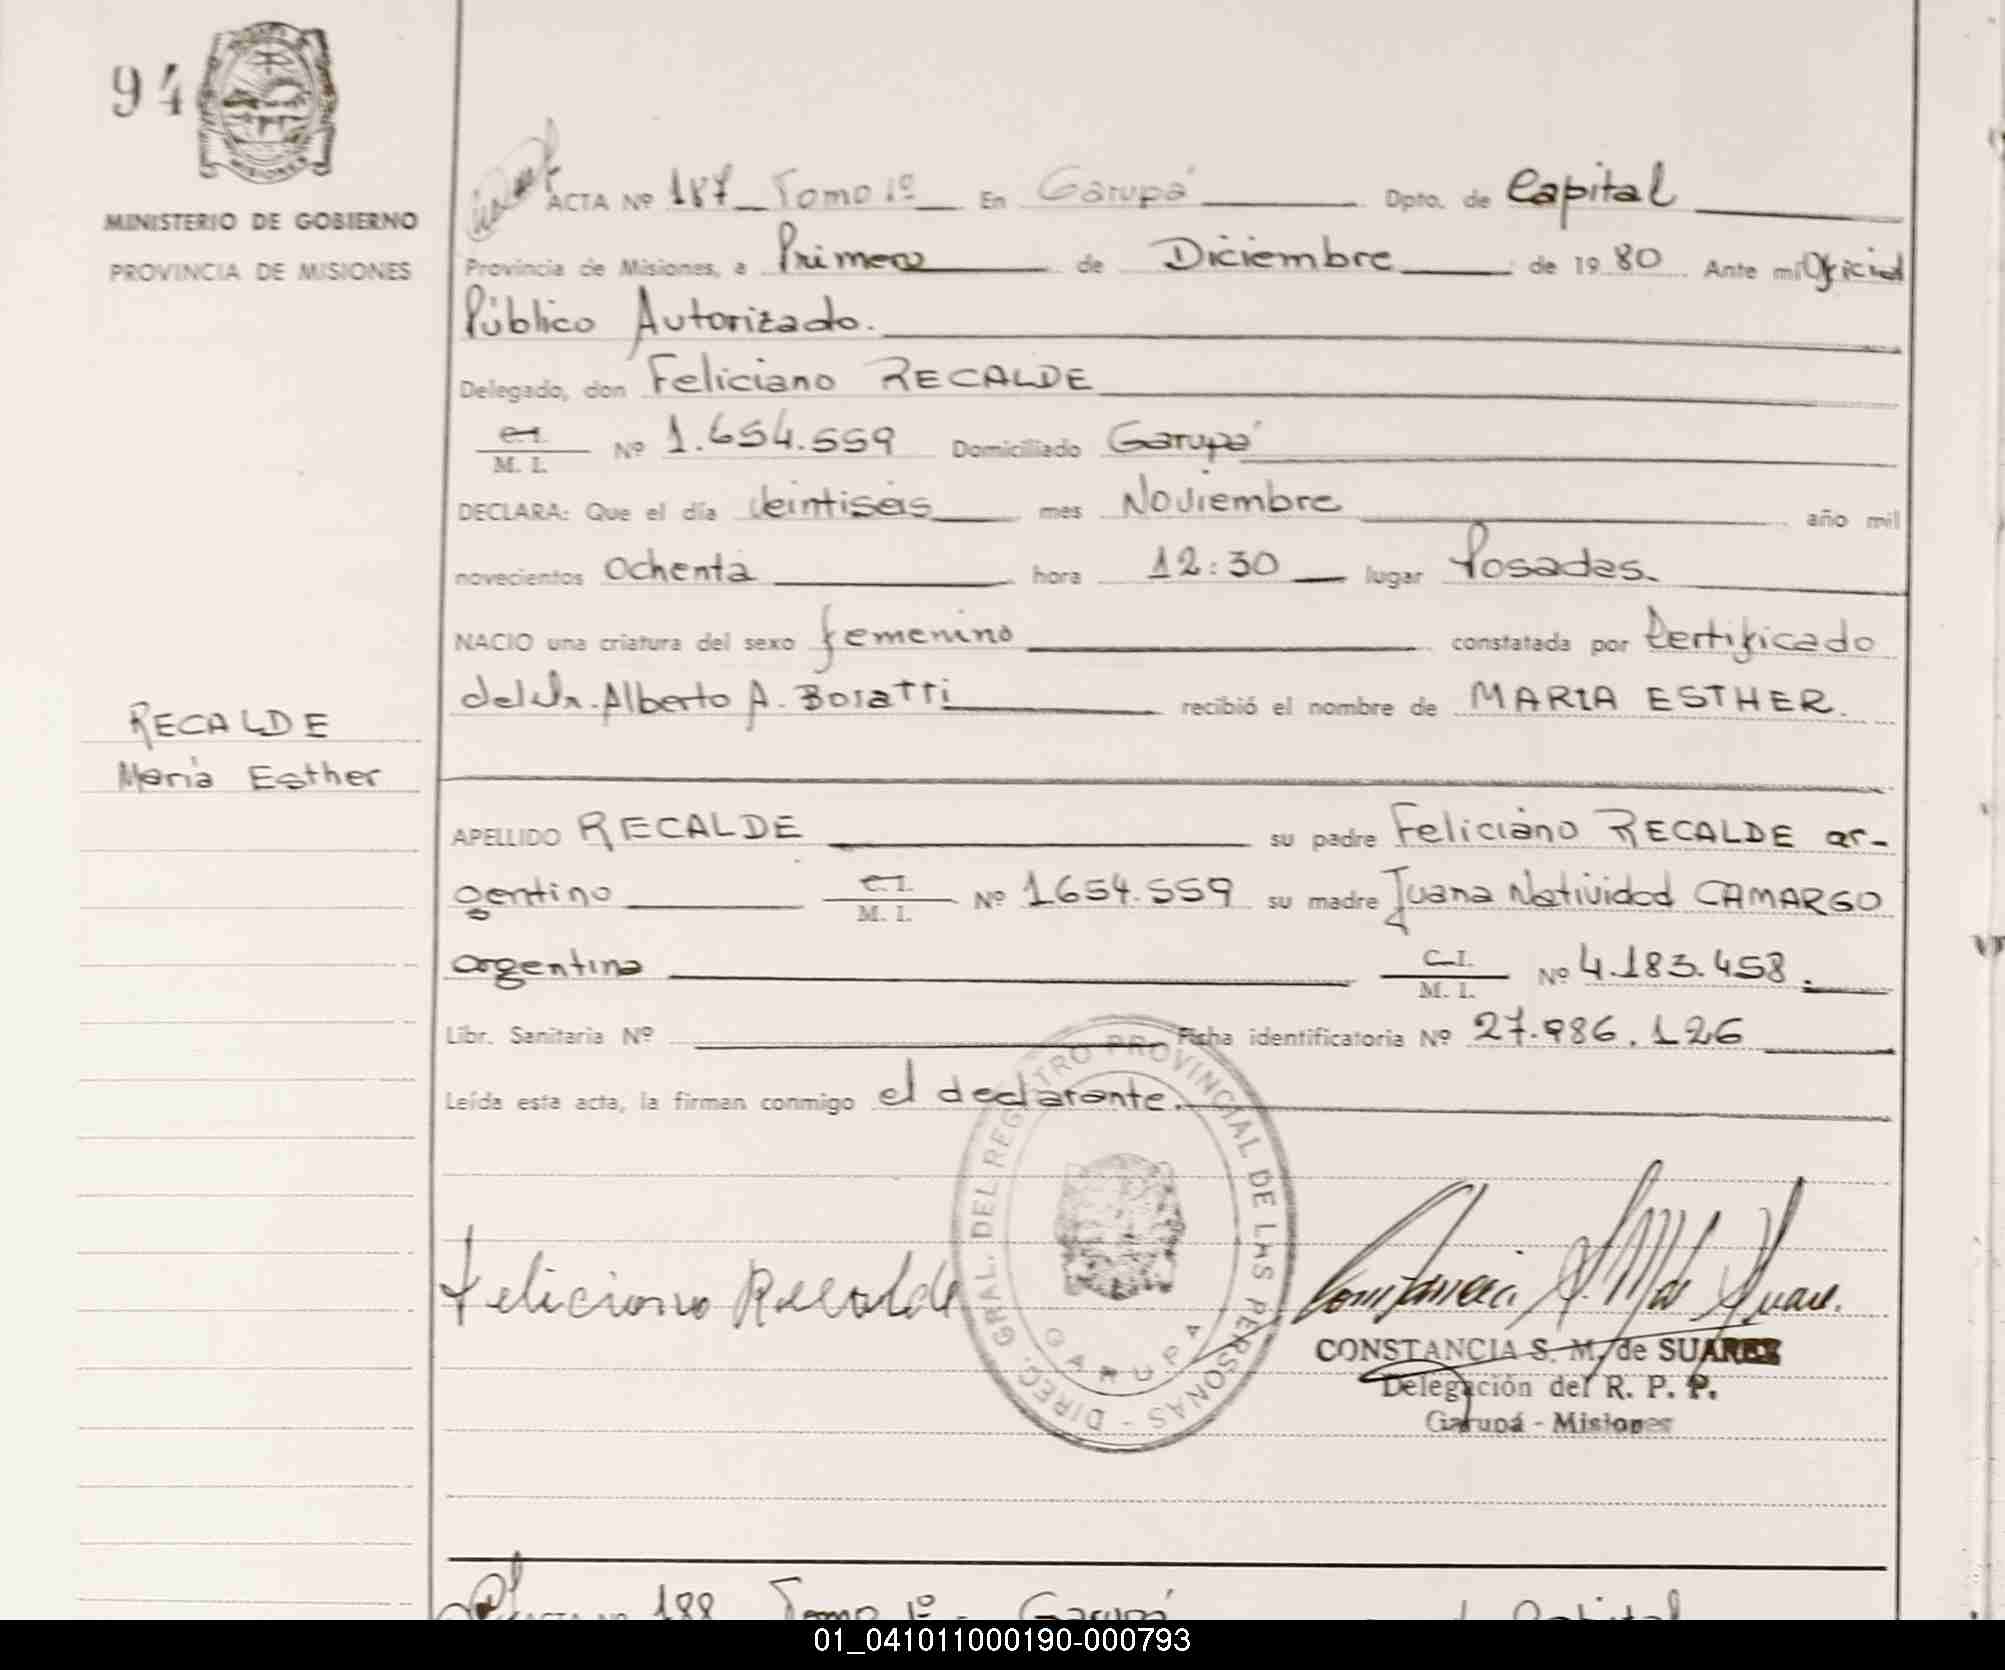 94
MISIONES
MINISTERIO DE GOBIERNO
PROVINCIA DE MISIONES
ACTA Nº 187 Tomo 1º En Garupá Dpto. de Capital
Provincia de Misiones, a Primero de Diciembre de 19 80 Ante mi Oficial
Público Autorizado.
Delegado, don Feliciano RECALDE
C.I.
M. I. Nº 1.654.559 Domiciliado Garupá
DECLARA: Que el día veintiseis mes Noviembre año mil
novecientos ochenta hora 12:30 lugar Posadas.
NACIO una criatura del sexo femenino constatada por Certificado
del Dr. Alberto A. Boratti recibió el nombre de MARIA ESTHER.
RECALDE
María Esther
APELLIDO RECALDE su padre Feliciano RECALDE ar-
gentino C.I.
M. I. Nº 1654.559 su madre Juana Natividad CAMARGO
argentina C.I.
M. I. Nº 4.183.458.
Libr. Sanitaria Nº Ficha identificatoria Nº 27.986.126
Leída esta acta, la firman conmigo el declarante.
DIREC. GRAL. DEL REGISTRO PROVINCIAL DE LAS PERSONAS -
GARUPA
Feliciano Recalde
Constancia S. M. de Suarez
CONSTANCIA S. M. de SUAREZ
Delegación del R. P. P.
Garupá - Misiones
188 Tomo 1º - Garupá Capital
01_041011000190-000793